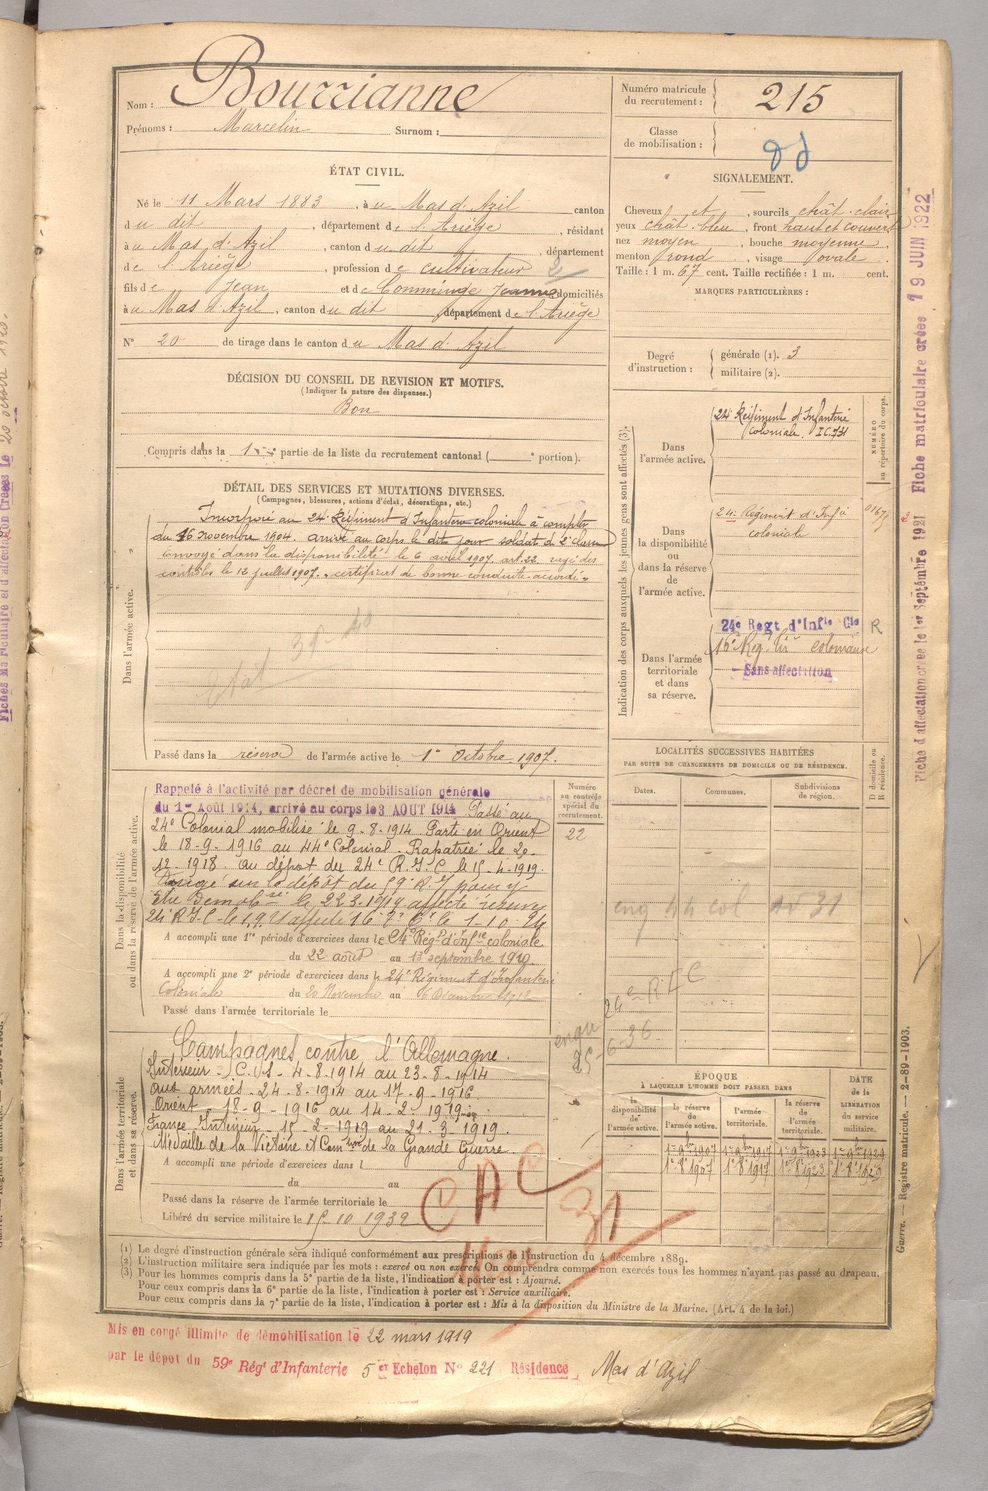 Nom : Bourrianne
Prénoms : Marcelin Surnom :
Numéro matricule du recrutement : 215
Classe de mobilisation :
ÉTAT CIVIL.
Né le 11 Mars 1883, à u Mas d'Azil canton
d u dit, département de l'Ariège, résidant
à u Mas d'Azil, canton d u dit, département
de l'Ariège, profession de cultivateur
fils de Jean et de Comminge Jeanne domiciliés
à u Mas d'Azil, canton d u dit département de l'Ariège
N° 20 de tirage dans le canton d u Mas d'Azil
SIGNALEMENT.
Cheveux et, sourcils chât. clair
yeux chât. bleu, front haut et couvert
nez moyen, bouche moyenne
menton rond, visage ovale
Taille : 1 m. 67 cent. Taille rectifiée : 1 m. cent.
MARQUES PARTICULIÈRES :
Degré d'instruction : générale (1). 3
militaire (2).
DÉCISION DU CONSEIL DE REVISION ET MOTIFS.
(Indiquer la nature des dispenses.)
Bon
Compris dans la 1re partie de la liste du recrutement cantonal ( e portion).
DÉTAIL DES SERVICES ET MUTATIONS DIVERSES.
(Campagnes, blessures, actions d'éclat, décorations, etc.)
Dans l'armée active.
Incorporé au 24e Régiment d'Infanterie coloniale à compter
du 16 novembre 1904. arrivé au corps le dit jour soldat de 2e classe
Envoyé dans la disponibilité le 6 avril 1907. art. 22. rayé des
contrôles le 12 juillet 1907. "certificat de bonne conduite accordé"
Passé dans la réserve de l'armée active le 1er Octobre 1907.
Indication des corps auxquels les jeunes gens sont affectés (3).
NUMÉRO au répertoire du corps.
Dans l'armée active.
24e Régiment d'Infanterie
Coloniale
Dans la disponibilité ou dans la réserve de l'armée active.
24e Régiment d'Infie
coloniale
Dans l'armée territoriale et dans sa réserve.
24e Regt d'Infie Cle R
16e Rég. Inf. coloniale
Sans affectation
Dans la disponibilité ou dans la réserve de l'armée active.
Rappelé à l'activité par décret de mobilisation générale
du 1er Août 1914, arrivé au corps le 3 AOUT 1914 Passé au
24e Colonial mobilisé le 9-8-1914. Parti en Orient
le 18-9-1916 au 44e Colonial. Rapatrié le 20-
12-1918. au dépôt du 24e R.I.C. le 15-4-1919.
Dirigé sur le dépôt du 59e R.I pour y
être Démobsé le 22.3.1919 affecté réserve
24e R.I.C. le 1.9.21 affecté 16e le 1-10-24
A accompli une 1re période d'exercices dans le 24e Régt d'Infie coloniale
du 22 août au 13 septembre 1910.
A accompli une 2e période d'exercices dans le 24e Régiment d'Infanterie
Coloniale du 20 Novembre au 6 Décembre 1912
Passé dans l'armée territoriale le
Numéro au contrôle spécial du recrutement.
22
LOCALITÉS SUCCESSIVES HABITÉES
PAR SUITE DE CHANGEMENTS DE DOMICILE OU DE RÉSIDENCE.
Dates. Communes. Subdivisions de région. D domicile ou R résidence.
24e R I C
Dans l'armée territoriale et dans sa réserve.
Campagnes contre l'Allemagne.
Intérieur. - C.S - 4-8-1914 au 23-8-1914
aux armées - 24-8-1914 au 17-9-1916.
Orient - 18-9-1916 au 14-2-1919
France - Intérieur - 15-2-1919 au 21-3-1919.
Médaille de la Victoire et Comtive de la Grande Guerre.
A accompli une période d'exercices dans l
du au
Passé dans la réserve de l'armée territoriale le
Libéré du service militaire le 15-10-1932
CAC
31
ÉPOQUE
À LAQUELLE L'HOMME DOIT PASSER DANS
la disponibilité de l'armée active. la réserve de l'armée active. l'armée territoriale. la réserve de l'armée territoriale.
DATE de la LIBÉRATION du service militaire.
1er 9bre 1907 1er 9bre 1917 1er 9bre 1923 1er 9bre 1929
1er 8bre 1907 1er 8bre 1917 1er 8bre 1923
(1) Le degré d'instruction générale sera indiqué conformément aux prescriptions de l'instruction du 4 décembre 1889.
(2) L'instruction militaire sera indiquée par les mots : exercé ou non exercé. On comprendra comme non exercés tous les hommes n'ayant pas passé au drapeau.
(3) Pour les hommes compris dans la 5e partie de la liste, l'indication à porter est : Ajourné.
Pour ceux compris dans la 6e partie de la liste, l'indication à porter est : Service auxiliaire.
Pour ceux compris dans la 7e partie de la liste, l'indication à porter est : Mis à la disposition du Ministre de la Marine. (Art. 4 de la loi.)
Mis en congé illimité de démobilisation le 22 mars 1919
par le dépôt du 59e Régt d'Infanterie 5 Echelon N° 221 Résidence Mas d'Azil
Fiche d'affectation créée le 1er Septembre 1921 Fiche matriculaire créée 19 JUIN 1922
Guerre. — Registre matricule. — 2-89-1903.